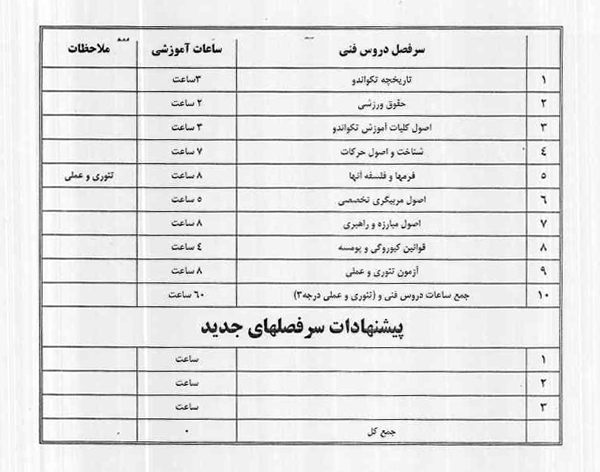 سرفصل دروس فنی ساعات آموزشی ملاحظات
۱ تاریخچه تکواندو ۳ساعت
۲ حقوق ورزشی ۲ ساعت
۳ اصول کلیات آموزش تکواندو ۳ ساعت
۴ شناخت و اصول حرکات ۷ ساعت
۵ فرمها و فلسفه آنها ۸ ساعت تئوری و عملی
۶ اصول مربیگری تخصصی ۵ ساعت
۷ اصول مبارزه و راهبری ۸ ساعت
۸ قوانین کیوروگی و پومسه ٤ ساعت
۹ آزمون تئوری و عملی ۸ ساعت
۱۰ جمع ساعات دروس فنی و (تئوری و عملی درجه۳) ۶۰ ساعت
پیشنهادات سرفصلهای جدید
۱ ساعت
۲ ساعت
۳ ساعت
جمع کل ۰